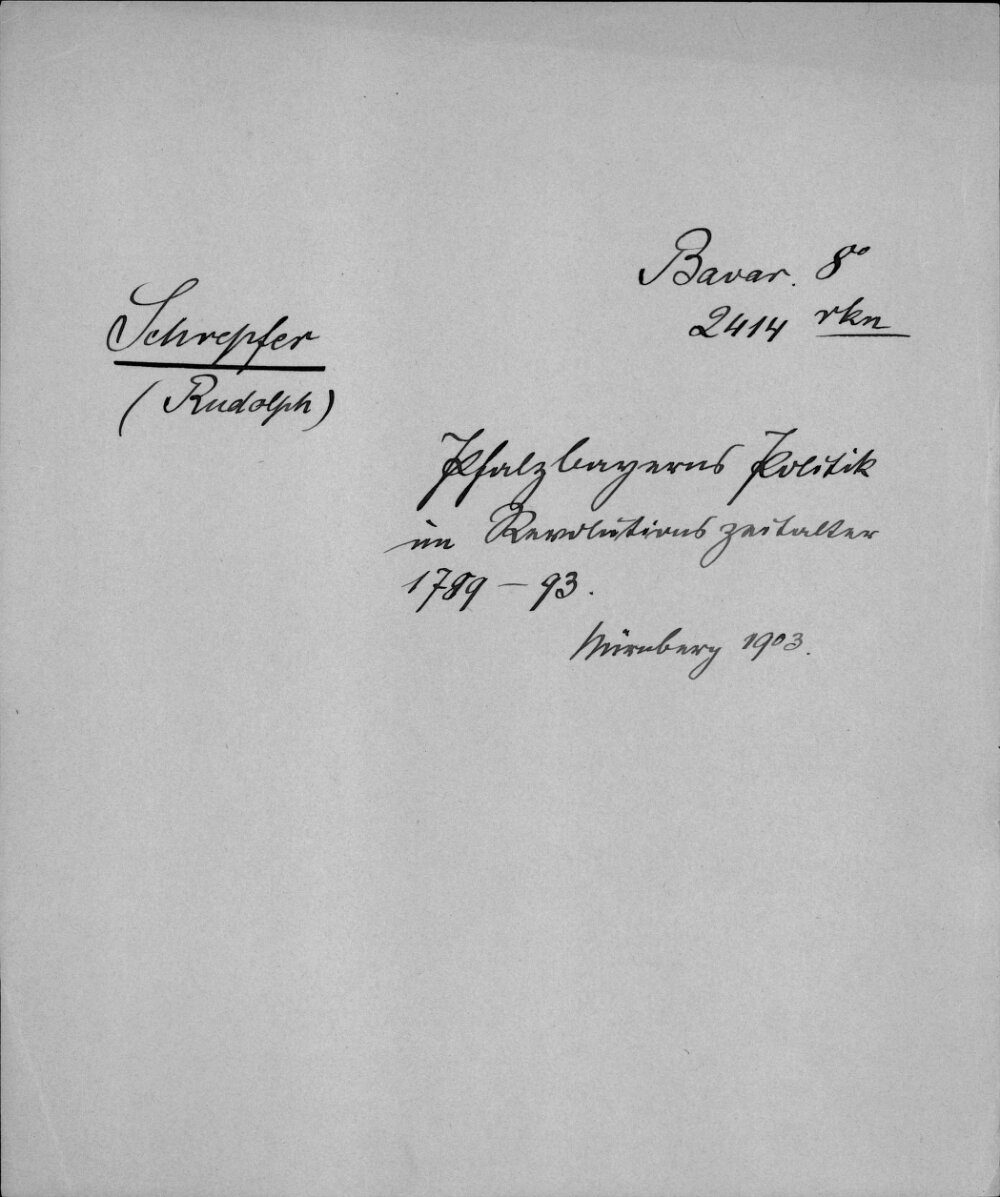 Bavar. 8°
2414 rkn
Schrepfer
(Rudolph)
Pfalzbayerns Politik
im Revolutionszeitalter
1789 – 93.
Nürnberg 1903.